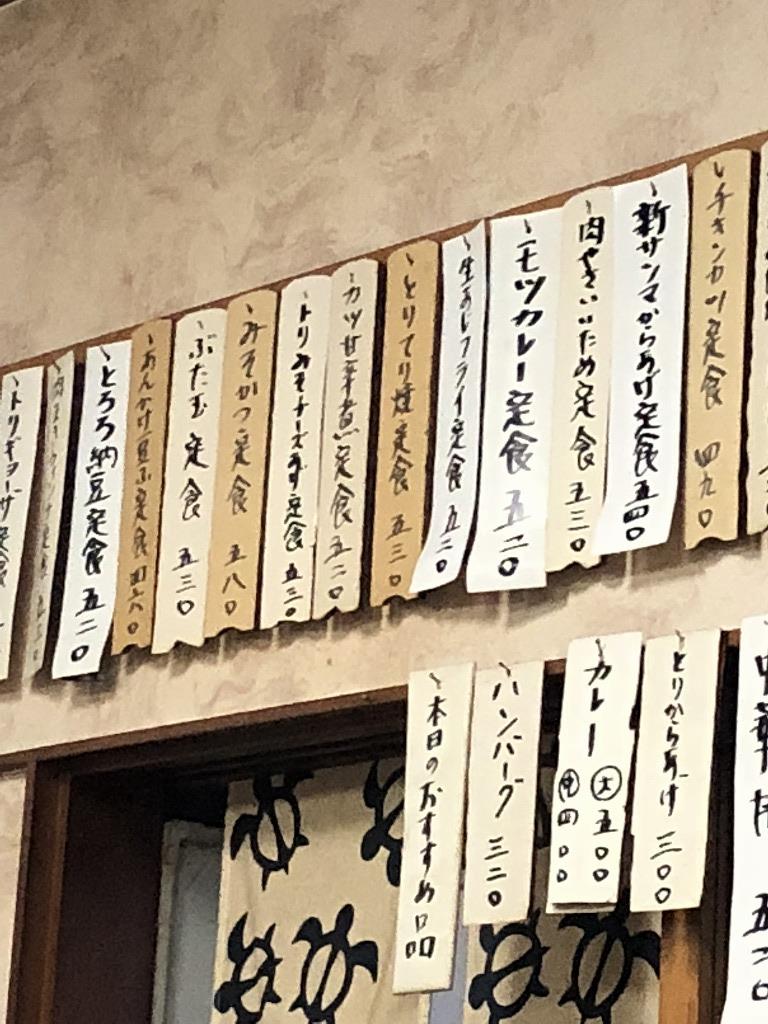 チキンカツ定食 四九〇
新サンマからあげ定食 五四〇
肉やさいいため定食 五三〇
モツカレー定食 五二〇
生あじフライ定食 五二〇
とりてり焼定食 五三〇
カツ甘辛煮定食 五二〇
トリみそチーズ
定食 五三〇
みそかつ定食 五八〇
ぶた玉定食 五三〇
あんかけ豆ふ定食 四六〇
とろろ納豆定食 五二〇
トリギョーザ定食
五二〇
とりからあげ 三〇〇
カレー
大 五〇〇
四〇〇
ハンバーグ 三二〇
本日のおすすめ品